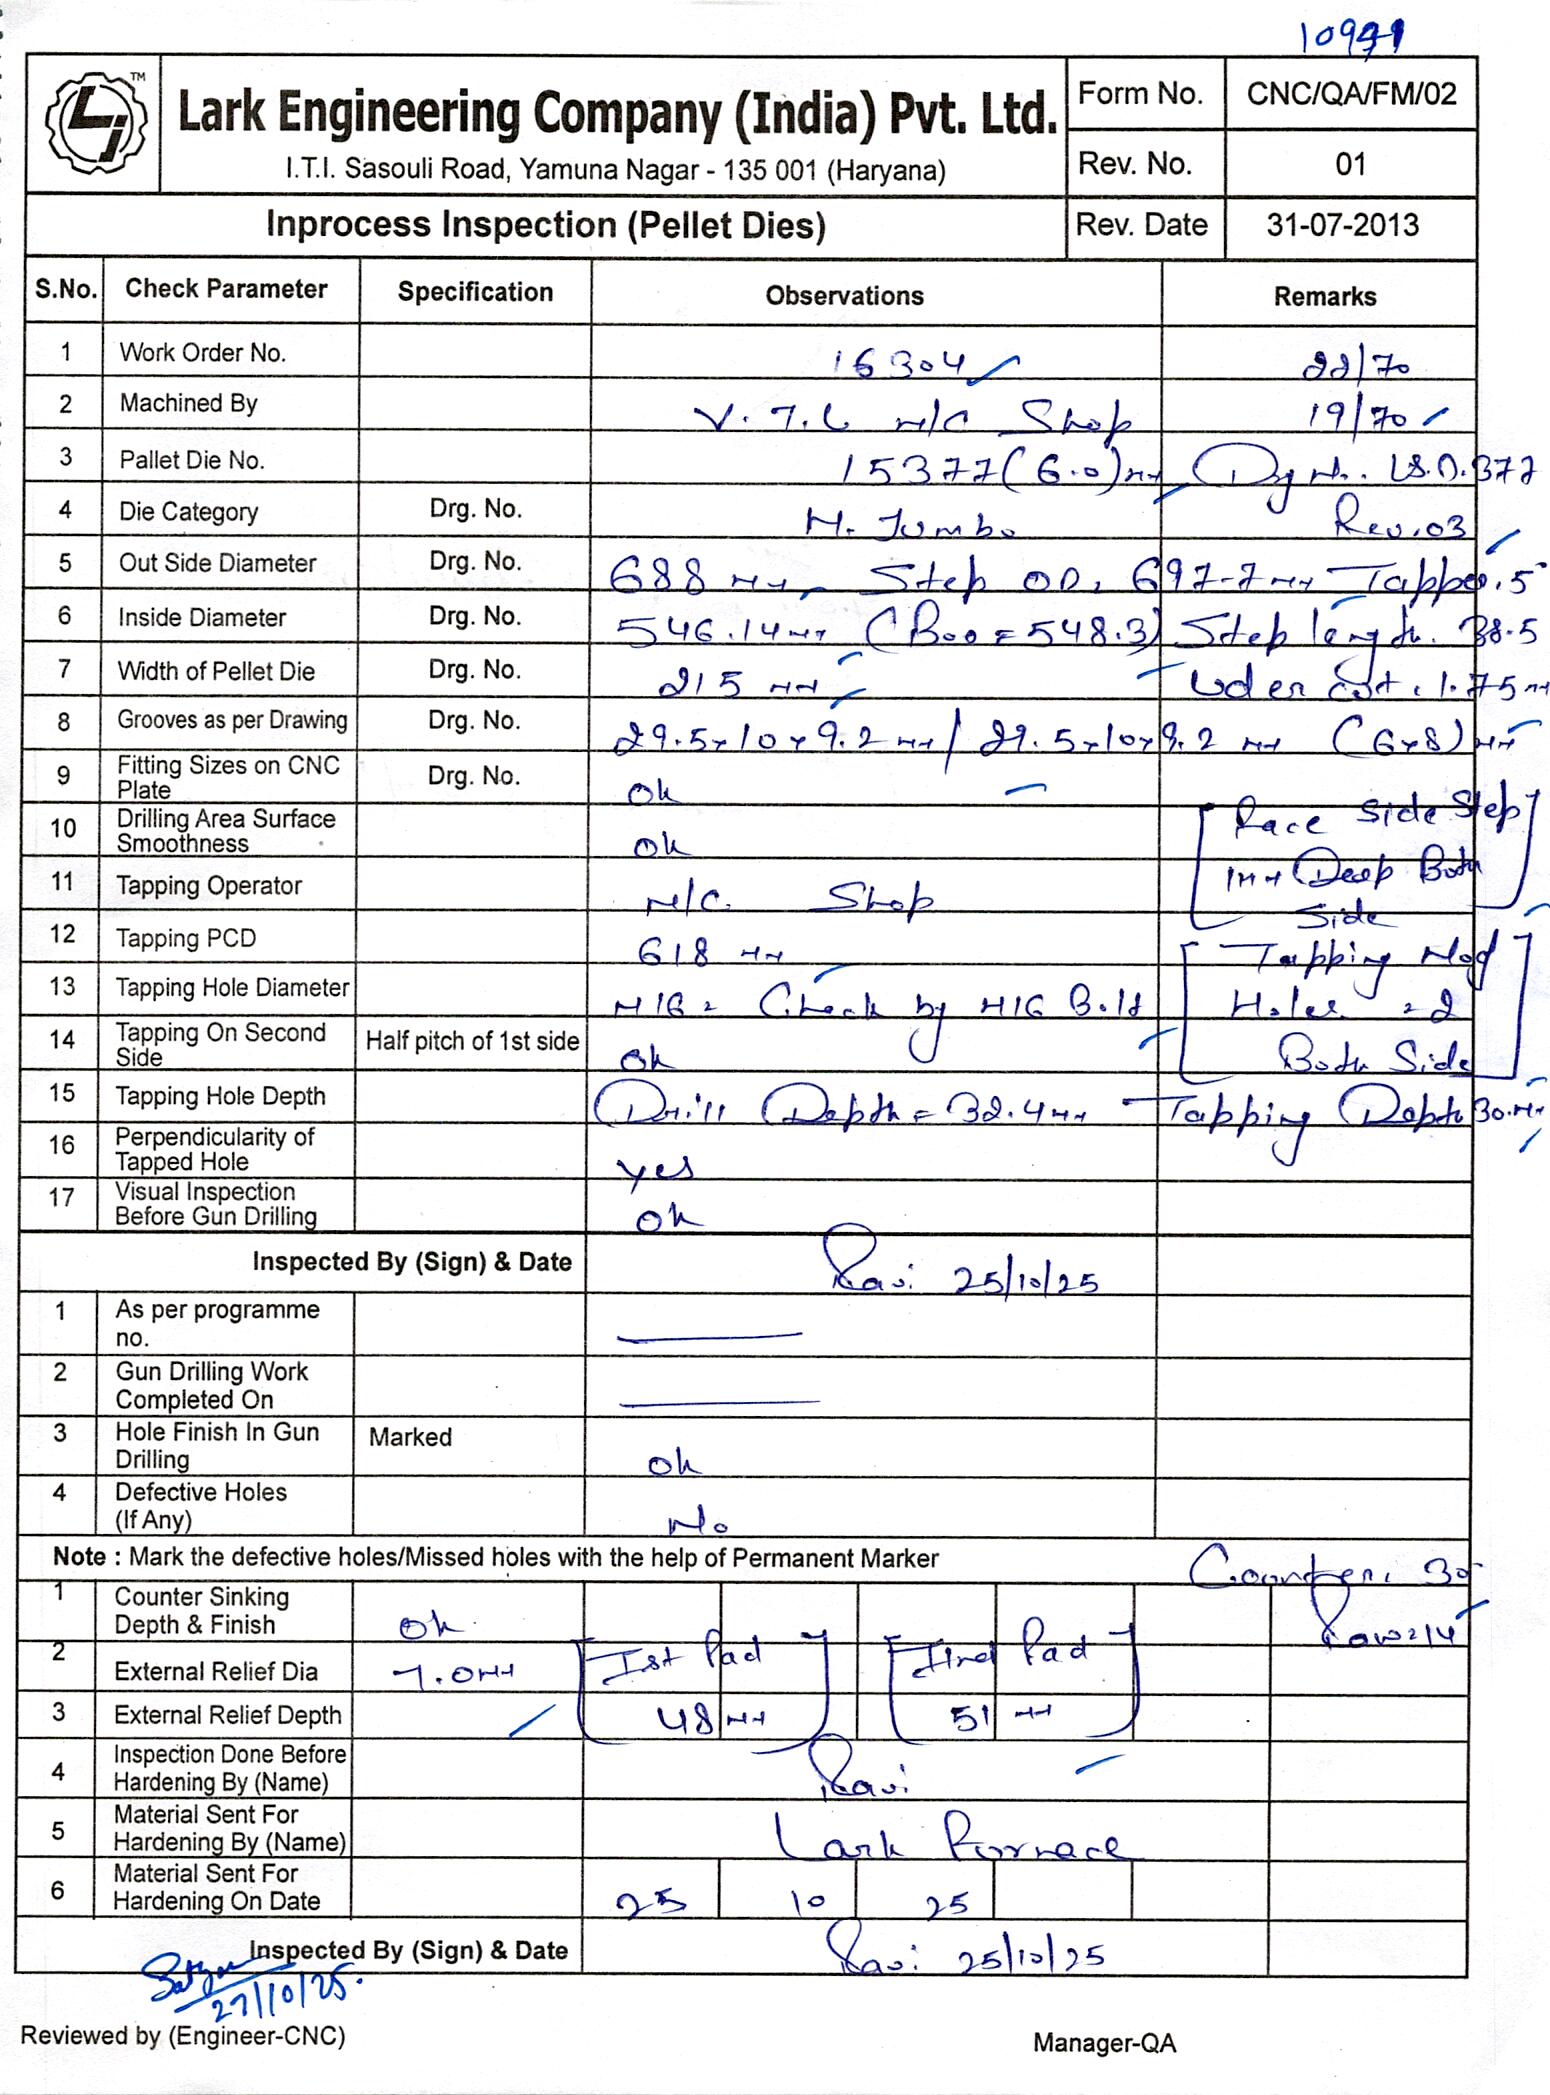 Lark Engineering Company (India) Pvt. Ltd.
I.T.I. Sasouli Road, Yamuna Nagar - 135 001 (Haryana)
Form No. CNC/QA/FM/02
Rev. No. 01
Inprocess Inspection (Pellet Dies) Rev. Date 31-07-2013
S.No. Check Parameter Specification Observations Remarks
1 Work Order No. 16304 22/70
2 Machined By V.T.L M/C Shop 19/70
3 Pallet Die No. 15377 (6.0) mm Drg No. LS.D.377
4 Die Category Drg. No. H. Jumbo Rev.03
5 Out Side Diameter Drg. No. 688 mm Step OD. 697.7 mm Tapper.5°
6 Inside Diameter Drg. No. 546.14 mm (Boo = 548.3) Step length. 38.5
7 Width of Pellet Die Drg. No. 215 mm Uder cut. 1.75 mm
8 Grooves as per Drawing Drg. No. 29.5x10x9.2 mm / 29.5x10x9.2 mm (6x8) mm
9 Fitting Sizes on CNC Plate Drg. No. Ok
10 Drilling Area Surface Smoothness Ok Face Side Step
11 Tapping Operator M/C. Shop 1mm Deep Both Side
12 Tapping PCD 618 mm Tapping No of
13 Tapping Hole Diameter M16 = Check by M16 Bolt Holes = 2
14 Tapping On Second Side Half pitch of 1st side Ok Both Side
15 Tapping Hole Depth Drill Depth = 32.4 mm Tapping Depth 30 mm
16 Perpendicularity of Tapped Hole yes
17 Visual Inspection Before Gun Drilling Ok
Inspected By (Sign) & Date Ravi 25/10/25
1 As per programme no.
2 Gun Drilling Work Completed On
3 Hole Finish In Gun Drilling Marked Ok
4 Defective Holes (If Any) No
Note : Mark the defective holes/Missed holes with the help of Permanent Marker Counter. 30
1 Counter Sinking Depth & Finish Ok
2 External Relief Dia 7.0 mm Ist Pad IInd Pad
3 External Relief Depth 48 mm 51 mm
4 Inspection Done Before Hardening By (Name) Ravi
5 Material Sent For Hardening By (Name) Lark Furnace
6 Material Sent For Hardening On Date 25 10 25
Inspected By (Sign) & Date Ravi 25/10/25
27/10/25.
Reviewed by (Engineer-CNC) Manager-QA